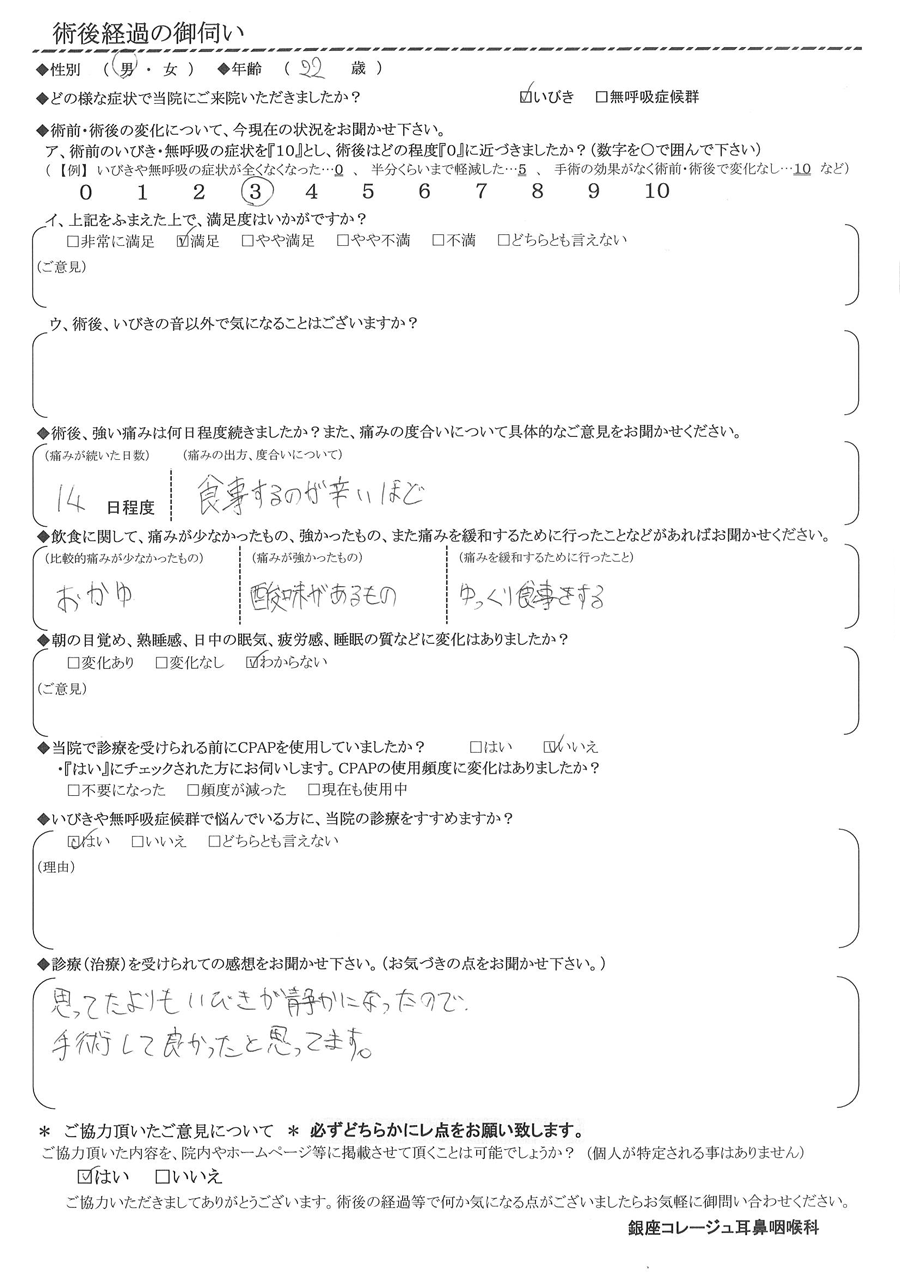 術後経過の御伺い
◆性別 (男・女) ◆年齢 (22 歳)
◆どの様な症状で当院にご来院いただきましたか? ☑いびき □無呼吸症候群
◆術前・術後の変化について、今現在の状況をお聞かせ下さい。
ア、術前のいびき・無呼吸の症状を『10』とし、術後はどの程度『0』に近づきましたか?(数字を〇で囲んで下さい)
(【例】 いびきや無呼吸の症状が全くなくなった…0 、 半分くらいまで軽減した…5 、 手術の効果がなく術前・術後で変化なし…10 など)
0 1 2 3 4 5 6 7 8 9 10
イ、上記をふまえた上で、満足度はいかがですか?
□非常に満足 ☑満足 □やや満足 □やや不満 □不満 □どちらとも言えない
(ご意見)
ウ、術後、いびきの音以外で気になることはございますか?
◆術後、強い痛みは何日程度続きましたか?また、痛みの度合いについて具体的なご意見をお聞かせください。
(痛みが続いた日数) (痛みの出方、度合いについて)
14 日程度 食事するのが辛いほど
◆飲食に関して、痛みが少なかったもの、強かったもの、また痛みを緩和するために行ったことなどがあればお聞かせください。
(比較的痛みが少なかったもの) (痛みが強かったもの) (痛みを緩和するために行ったこと)
おかゆ 酸味があるもの ゆっくり食事をする
◆朝の目覚め、熟睡感、日中の眠気、疲労感、睡眠の質などに変化はありましたか?
□変化あり □変化なし ☑わからない
(ご意見)
◆当院で診療を受けられる前にCPAPを使用していましたか? □はい ☑いいえ
・『はい』にチェックされた方にお伺いします。CPAPの使用頻度に変化はありましたか?
□不要になった □頻度が減った □現在も使用中
◆いびきや無呼吸症候群で悩んでいる方に、当院の診療をすすめますか?
☑はい □いいえ □どちらとも言えない
(理由)
◆診療(治療)を受けられての感想をお聞かせ下さい。(お気づきの点をお聞かせ下さい。)
思ってたよりもいびきが静かになったので、
手術して良かったと思ってます。
* ご協力頂いたご意見について * 必ずどちらかにレ点をお願い致します。
ご協力頂いた内容を、院内やホームページ等に掲載させて頂くことは可能でしょうか? (個人が特定される事はありません)
☑はい □いいえ
ご協力いただきましてありがとうございます。術後の経過等で何か気になる点がございましたらお気軽に御問い合わせください。
銀座コレージュ耳鼻咽喉科